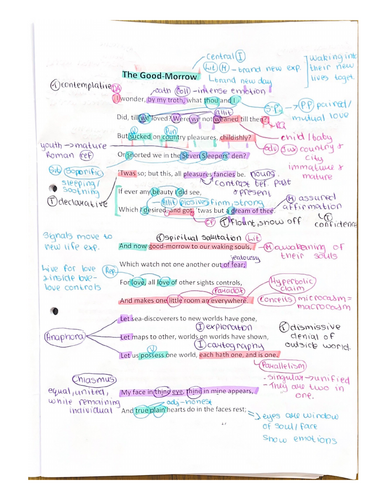 central I
Lit H - brand new exp.
brand new day
waking into
their new
lives toget.
The Good-Morrow
T contemplative
oath diff - intense emotion
I wonder, by my troth, what thou and I
paired/
mutual
love
Did, till we loved? Were we not weaned till then?
But sucked on country pleasures, childishly?
child/baby
country +
city
immature +
mature
youth → mature
Roman ref
Or snorted we in the Seven Sleepers' den?
soporific
sleeping/
soothing
'Twas so; but this, all pleasures fancies be.
nouns
contrast bet. past
+ present
I declarative
If ever any beauty I did see,
firm, strong
H assured
affirmation
Which I desired, and got, 'twas but a dream of thee.
flaunt, show off
T confidence
Signals move to
new life exp.
I spiritual salutation Lit
And now good-morrow to our waking souls,
H awakening of
their souls
Which watch not one another out of fear;
jealousy
Live for love
+ inside love-
love controls
Rep
For love, all love of other sights controls,
Paradox
Hyperbolic
claim
And makes one little room an everywhere.
conceits microcosm =
macrocosm
Let sea-discoverers to new worlds have gone,
I exploration
T dismissive
denial of
outside world.
Anaphora
Let maps to other, worlds on worlds have shown,
I cartography
Let us possess one world, each hath one, and is one.
Parallelism
- singular → unified
- they are two in
one.
Chiasmus
equal, united,
while remaining
individual
My face in thine eye, thine in mine appears,
adj - honest
And true plain hearts do in the faces rest;
eyes are window
of soul/face
show emotions